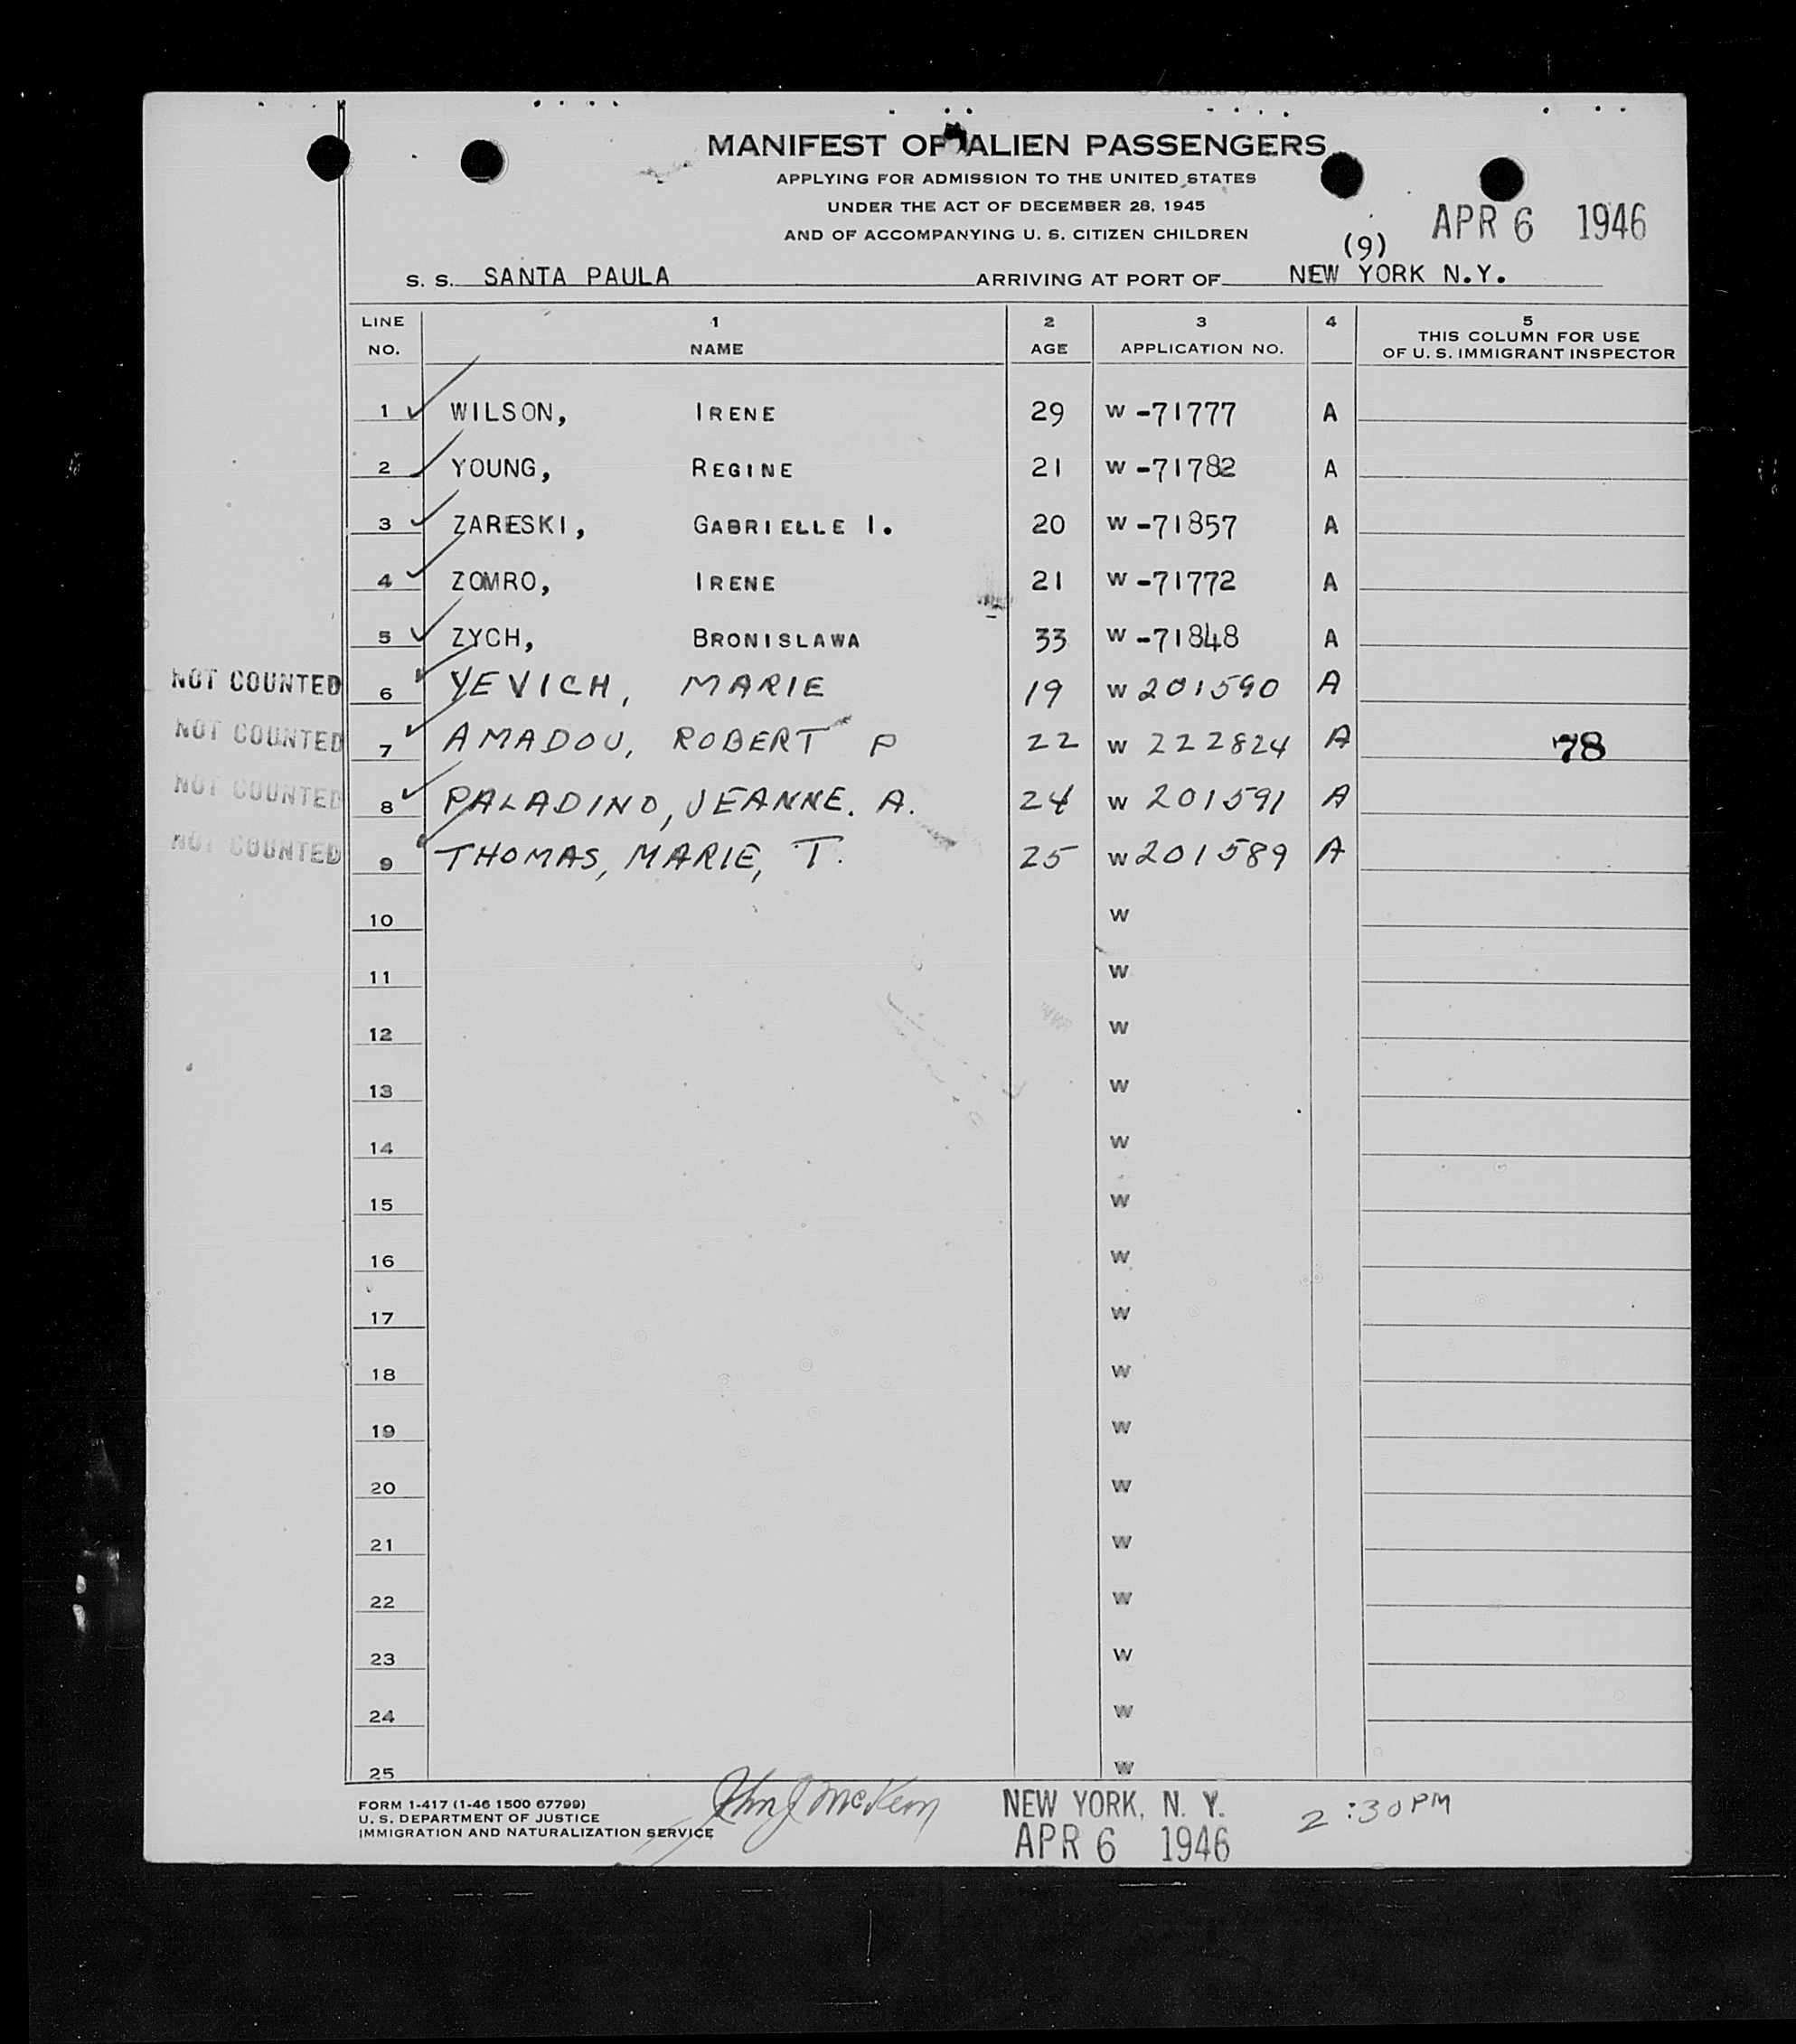 MANIFEST OF ALIEN PASSENGERS
APPLYING FOR ADMISSION TO THE UNITED STATES
UNDER THE ACT OF DECEMBER 28, 1945
AND OF ACCOMPANYING U. S. CITIZEN CHILDREN
(9) APR 6 1946
S. S. SANTA PAULA ARRIVING AT PORT OF NEW YORK N.Y.
LINE NO. 1 NAME 2 AGE 3 APPLICATION NO. 4 5 THIS COLUMN FOR USE OF U. S. IMMIGRANT INSPECTOR
1 WILSON, IRENE 29 W -71777 A
2 YOUNG, REGINE 21 W -71782 A
3 ZARESKI, GABRIELLE I. 20 W -71857 A
4 ZOMRO, IRENE 21 W -71772 A
5 ZYCH, BRONISLAWA 33 W -71848 A
NOT COUNTED 6 YEVICH, MARIE 19 W 201590 A
NOT COUNTED 7 AMADOU, ROBERT P 22 W 222824 A 78
NOT COUNTED 8 PALADINO, JEANNE. A. 24 W 201591 A
NOT COUNTED 9 THOMAS, MARIE, T. 25 W 201589 A
10 W
11 W
12 W
13 W
14 W
15 W
16 W
17 W
18 W
19 W
20 W
21 W
22 W
23 W
24 W
25 W
FORM I-417 (1-46 1500 67799)
U. S. DEPARTMENT OF JUSTICE
IMMIGRATION AND NATURALIZATION SERVICE
John J McKeon
NEW YORK, N. Y.
APR 6 1946
2:30 PM